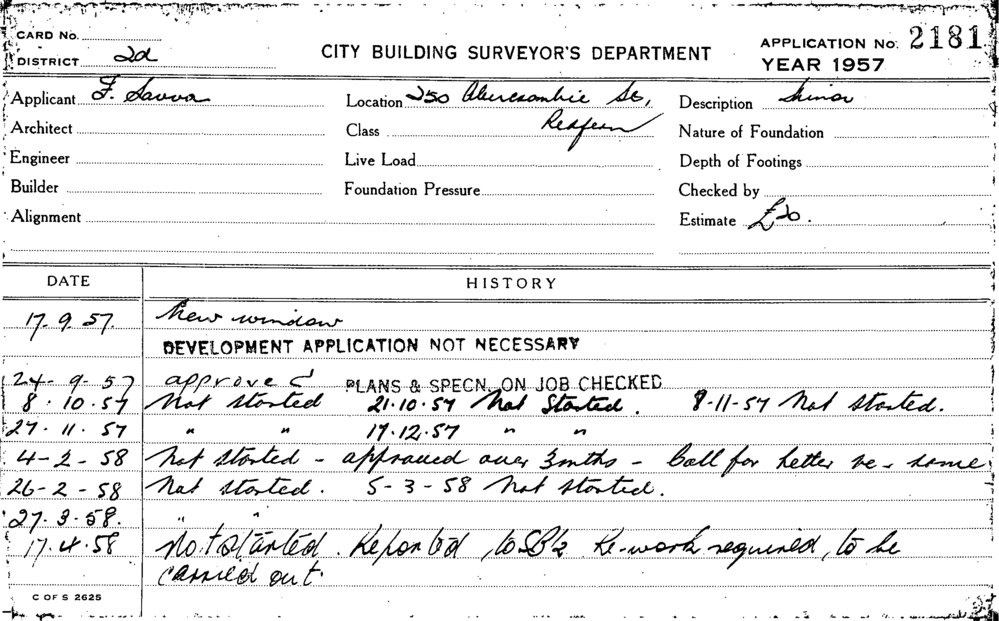 CARD No.
DISTRICT 2d
CITY BUILDING SURVEYOR'S DEPARTMENT
APPLICATION No. 2181
YEAR 1957
Applicant F. Savva
Location 250 Abercrombie St,
Description Minor
Architect
Class Redfern
Nature of Foundation
Engineer
Live Load
Depth of Footings
Builder
Foundation Pressure
Checked by
Alignment
Estimate £20.
DATE HISTORY
17.9.57. New window
DEVELOPMENT APPLICATION NOT NECESSARY
24-9-57 approved PLANS & SPECN. ON JOB CHECKED
8.10.57 Not started 21.10.57 Not Started. 8-11-57 Not started.
27.11.57 " " 17.12.57 " "
4-2-58 Not started - approved over 3mths - Call for letter re-same
26-2-58 Not started. 5-3-58 Not started.
27.3.58. " "
17.4.58 Not started. Reported to SB2 Re-work required, to be
carried out.
C OF S 2625